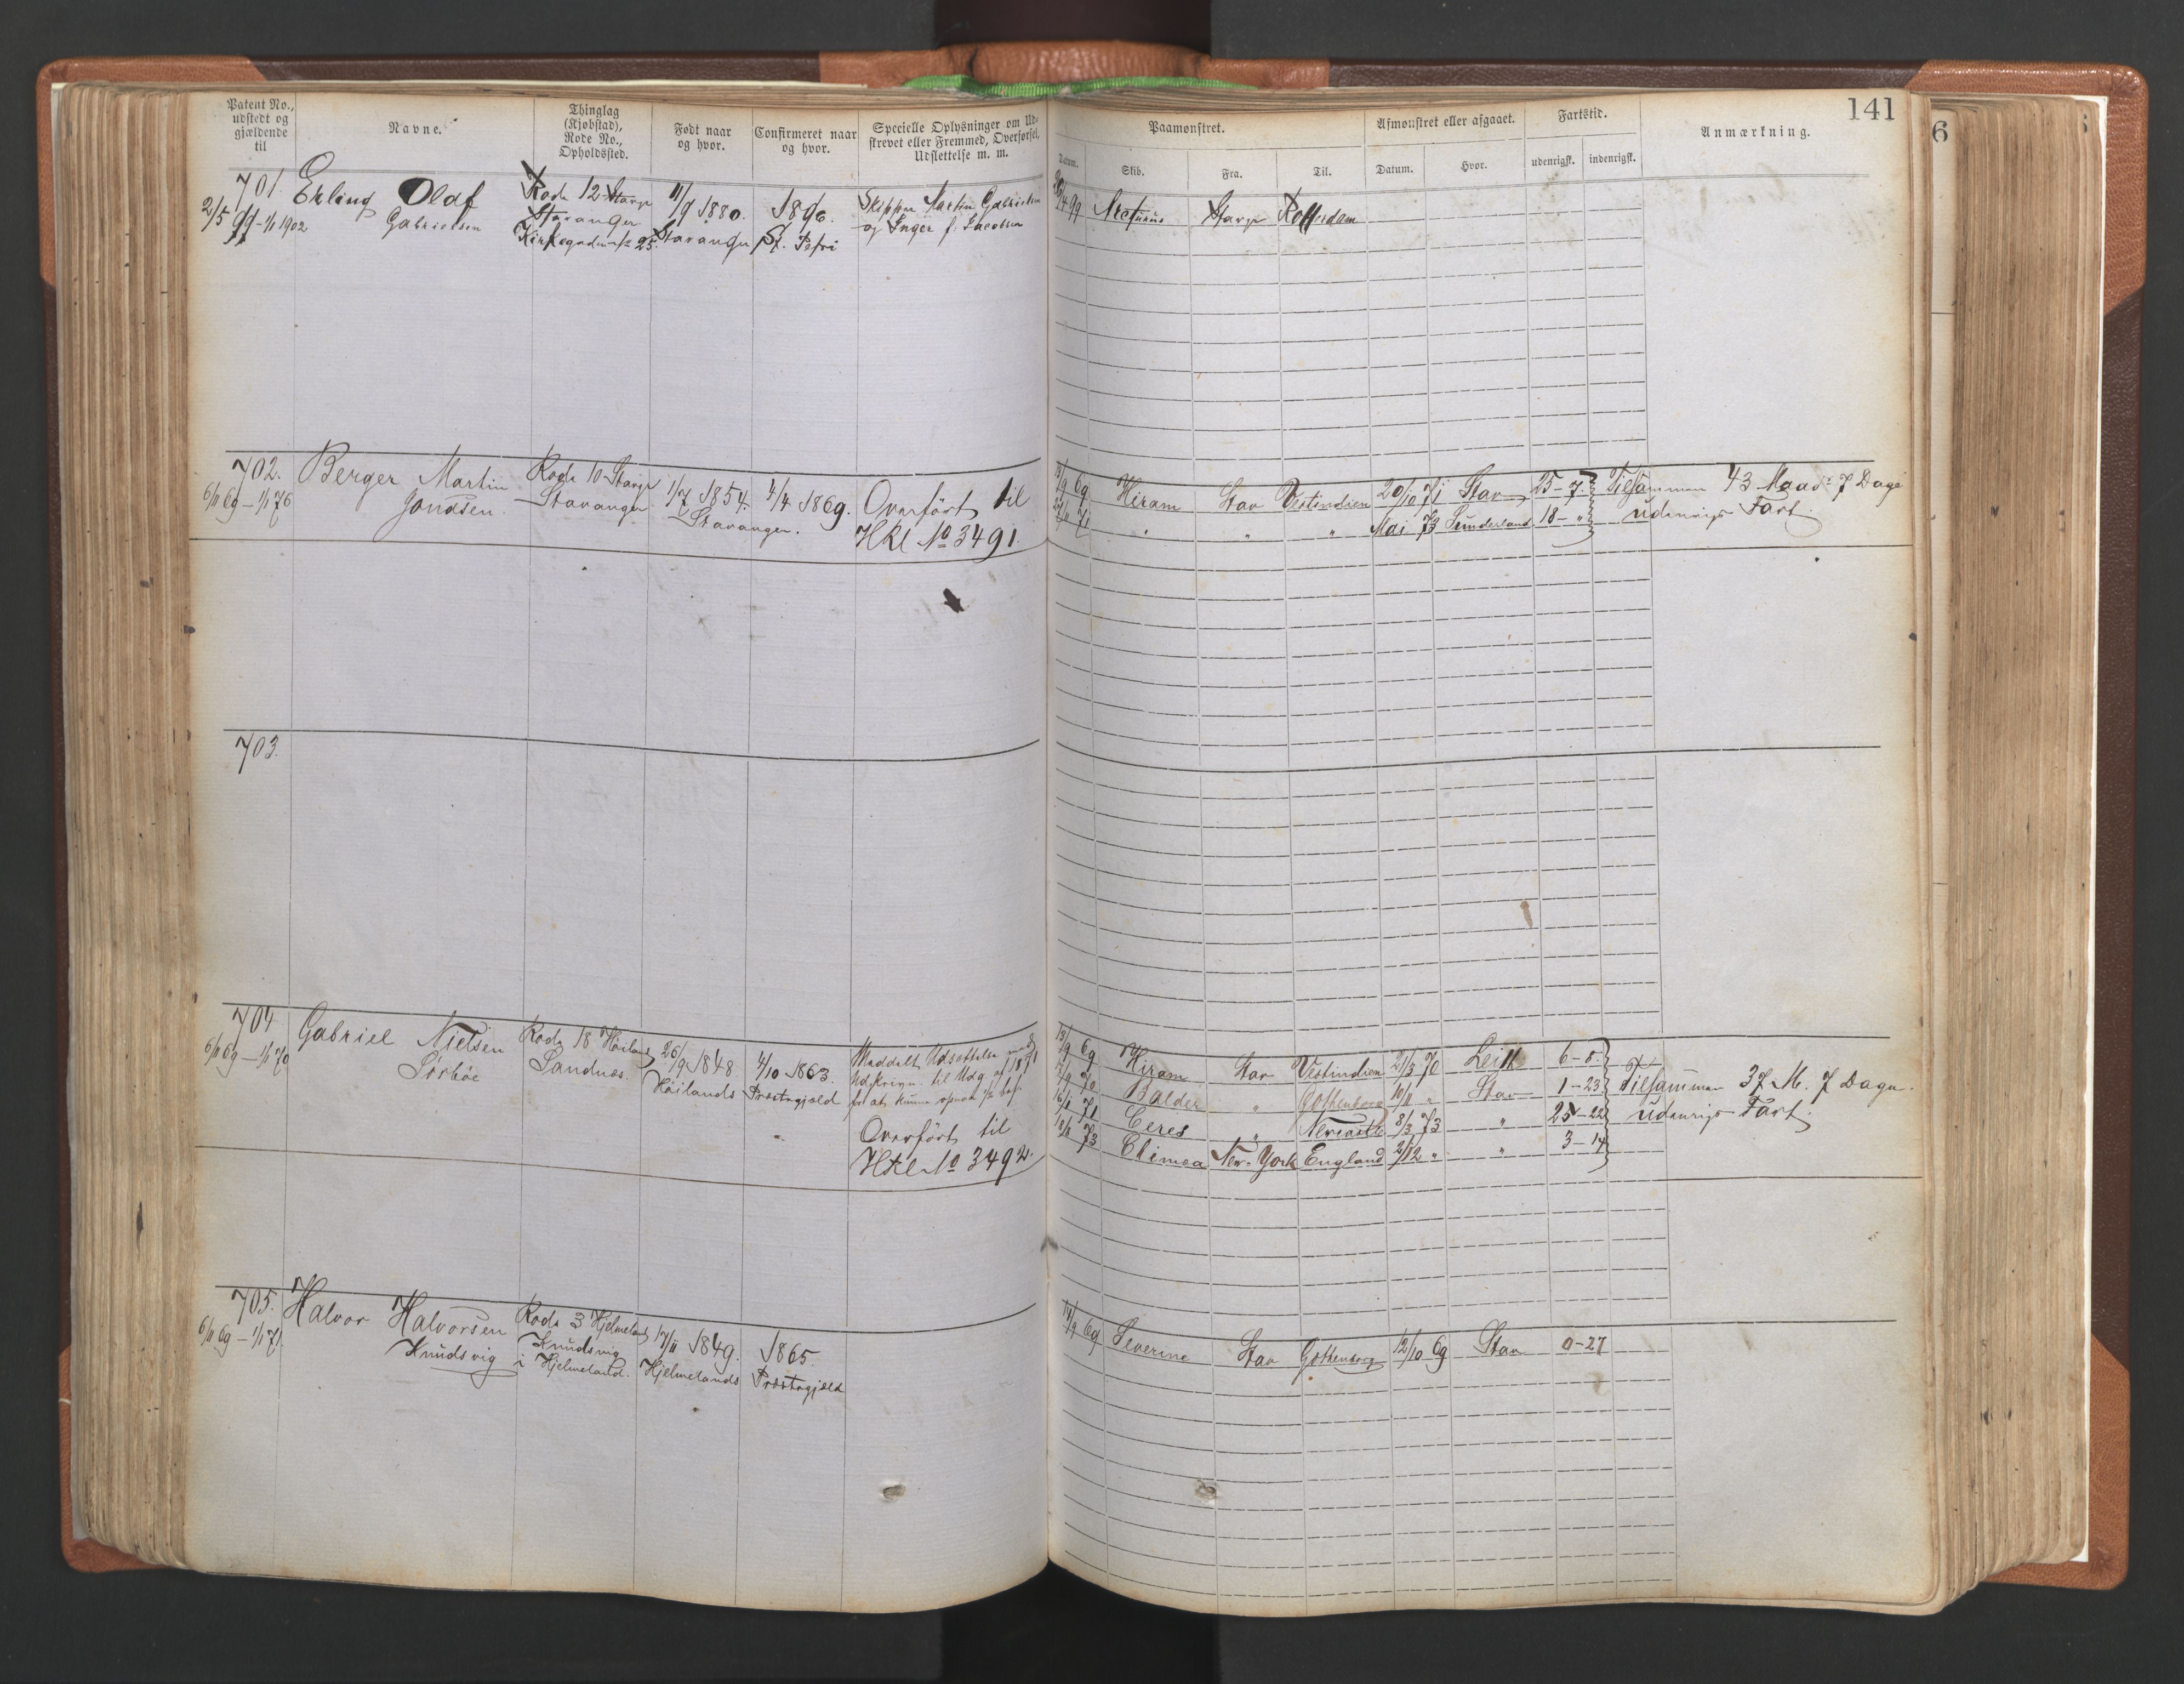 141
6
Patent No., udstedt og gjældende til
Navne.
Thinglag (Kjøbstad), Rode No., Opholdssted.
Født naar og hvor.
Confirmeret naar og hvor.
Specielle Oplysninger om Udskrevet eller Fremmed, Overførsel, Udslettelse m. m.
Paamønstret.
Afmønstret eller afgaaet.
Fartstid.
Anmærkning.
Datum.
Skib.
Fra.
Til.
Datum.
Hvor.
udenrigsk.
indenrigsk.
701. Erling Olaf Rode 12 Stavgr 11/9 1880. 1896. Skipper Martin Gabrielsen
2/5 99 - 1/1 1902 Gabrielsen Stavanger Stavanger St. Petri og Inger f. Jacobsen
Kirkegaden 25.
99 Arcturus Stavgr Rotterdam
702. Berger Martin Rode 10 Stavgr 1/7 1854. 4/4 1869. Overført til
6/11 69 - 1/1 76 Jonassen. Stavanger Stavanger. Hkl No 3491.
13/9 69 Hiram Stav Vestindien 20/10 71 Stav 25-7 Tilsammen 43 Maad: 7 Dage
71 " " " Mai 73 Sunderland 18-" udenrigs Fart.
703.
704. Gabriel Nielsen Rode 18 Høiland 26/9 1848. 4/10 1863. Meddelt Udsættelse med
6/11 69 - 1/1 70 Sørbøe Sandnæs. Høilands Præstegjæld Udskrivn. til Udg. af 1871
Overført til
Hkl No 3492.
13/9 69 Hiram Stav Vestindien 21/3 70 Leith 6-8. Tilsammen 37 M. 7 Dage.
70 Balder " Gothenborg 10/11 " Stav 1-23 udenrigs Fart.
71 Ceres " Newcastle 8/3 73 " 25-22
73 Climea New-York England 2/12 " " 3-14
705. Halvor Halvorsen Rode 3 Hjelmeland 17/11 1849. 1865.
6/11 69 - 1/1 71. Knudsvig Knudsvig i Hjelmeland. Hjelmelands Præstegjæld
14/9 69 Severine Stav Gothenborg 12/10 69 Stav 0-27